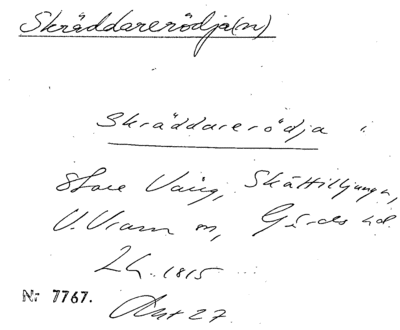 Skräddarerödja(n)
Skräddarerödja i
Store Väng, Skättilljunga,
V. Vram sn, Gärds hd.
Lh. 1815
Nr 7767.
Akt 27